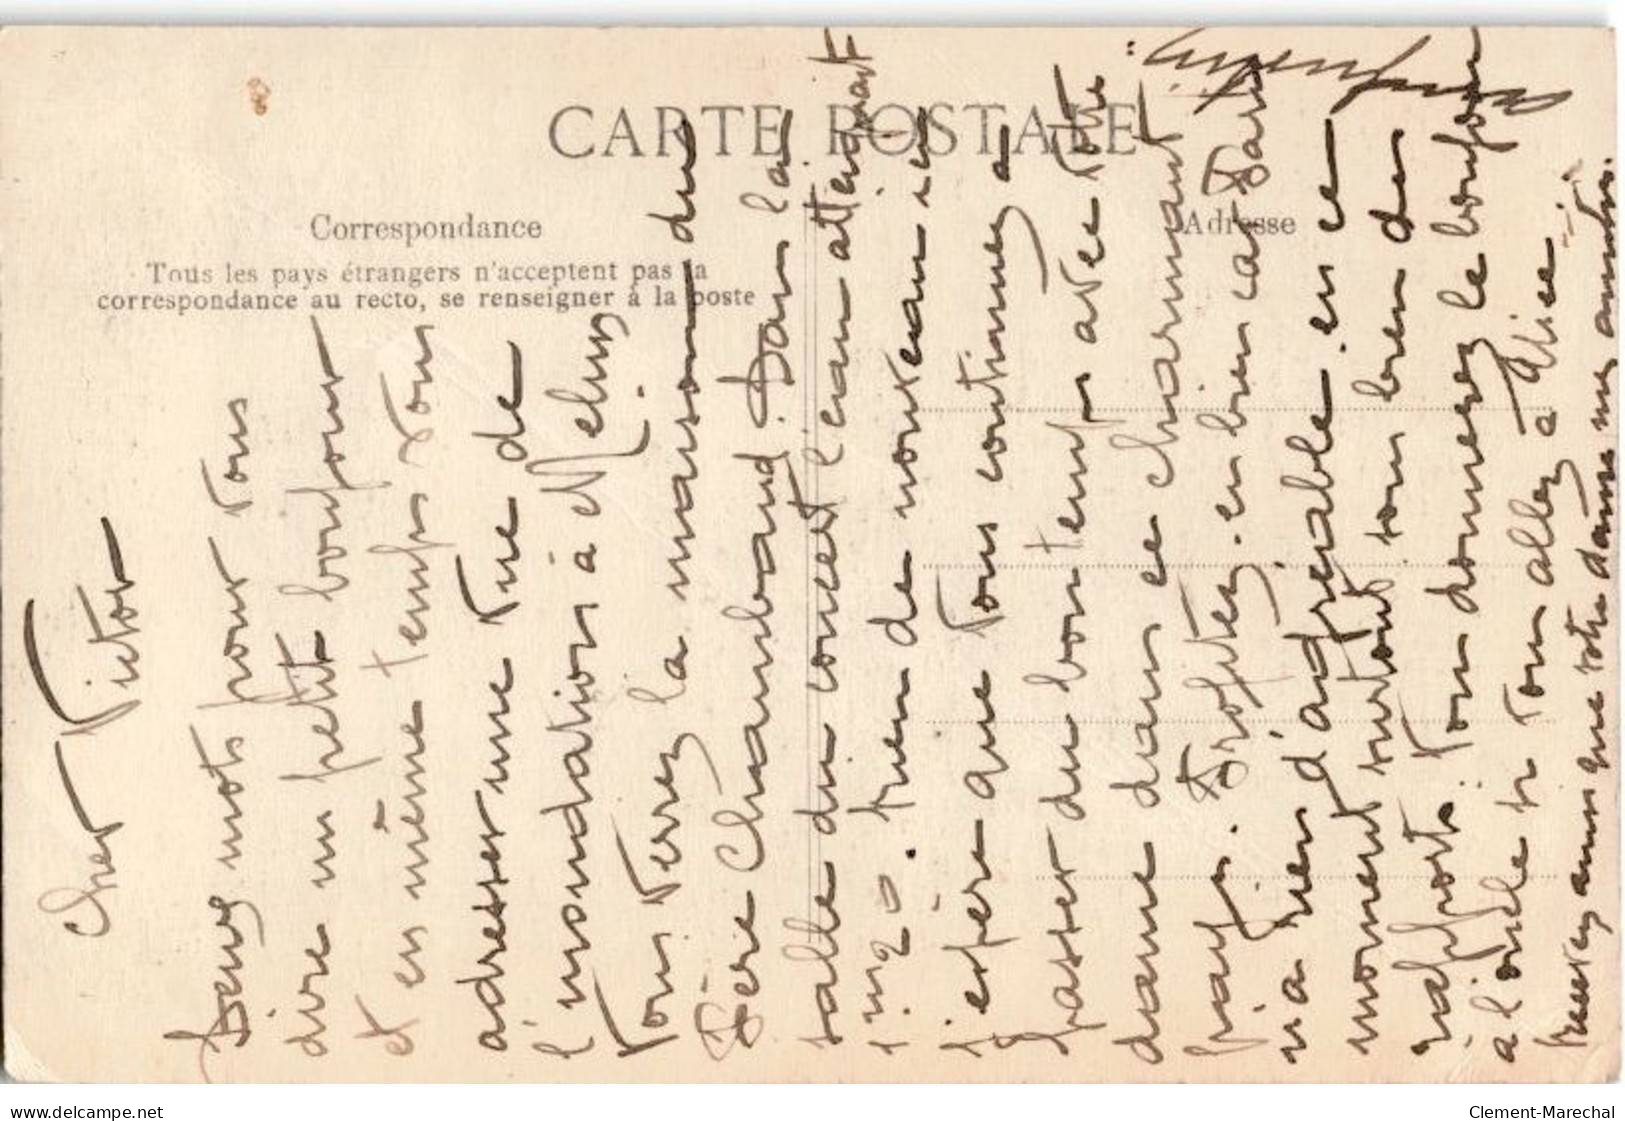 CARTE POSTALE
Correspondance
Tous les pays étrangers n'acceptent pas la
correspondance au recto, se renseigner à la poste
Adresse
Cher Victor
Deux mots pour vous
dire un petit bonjour
et en même temps vous
adresser une vue de
l'inondation à Melun
Vous verrez la maison du
Père Chambaud. Dans la
salle du concert l'eau atteignait
1m20. Rien de nouveau ici
j'espère que vous continuez a
passer du bon temps avec votre
dame dans ce charmant
pays. Profitez-en bien car Paris
n'a rien d'agréable en ce
moment surtout sous bien des
rapports. Vous donnerez le bonjour
à l'oncle si vous allez a
Recevez ainsi que votre dame mes amitiés.
www.delcampe.net
Clement-Marechal